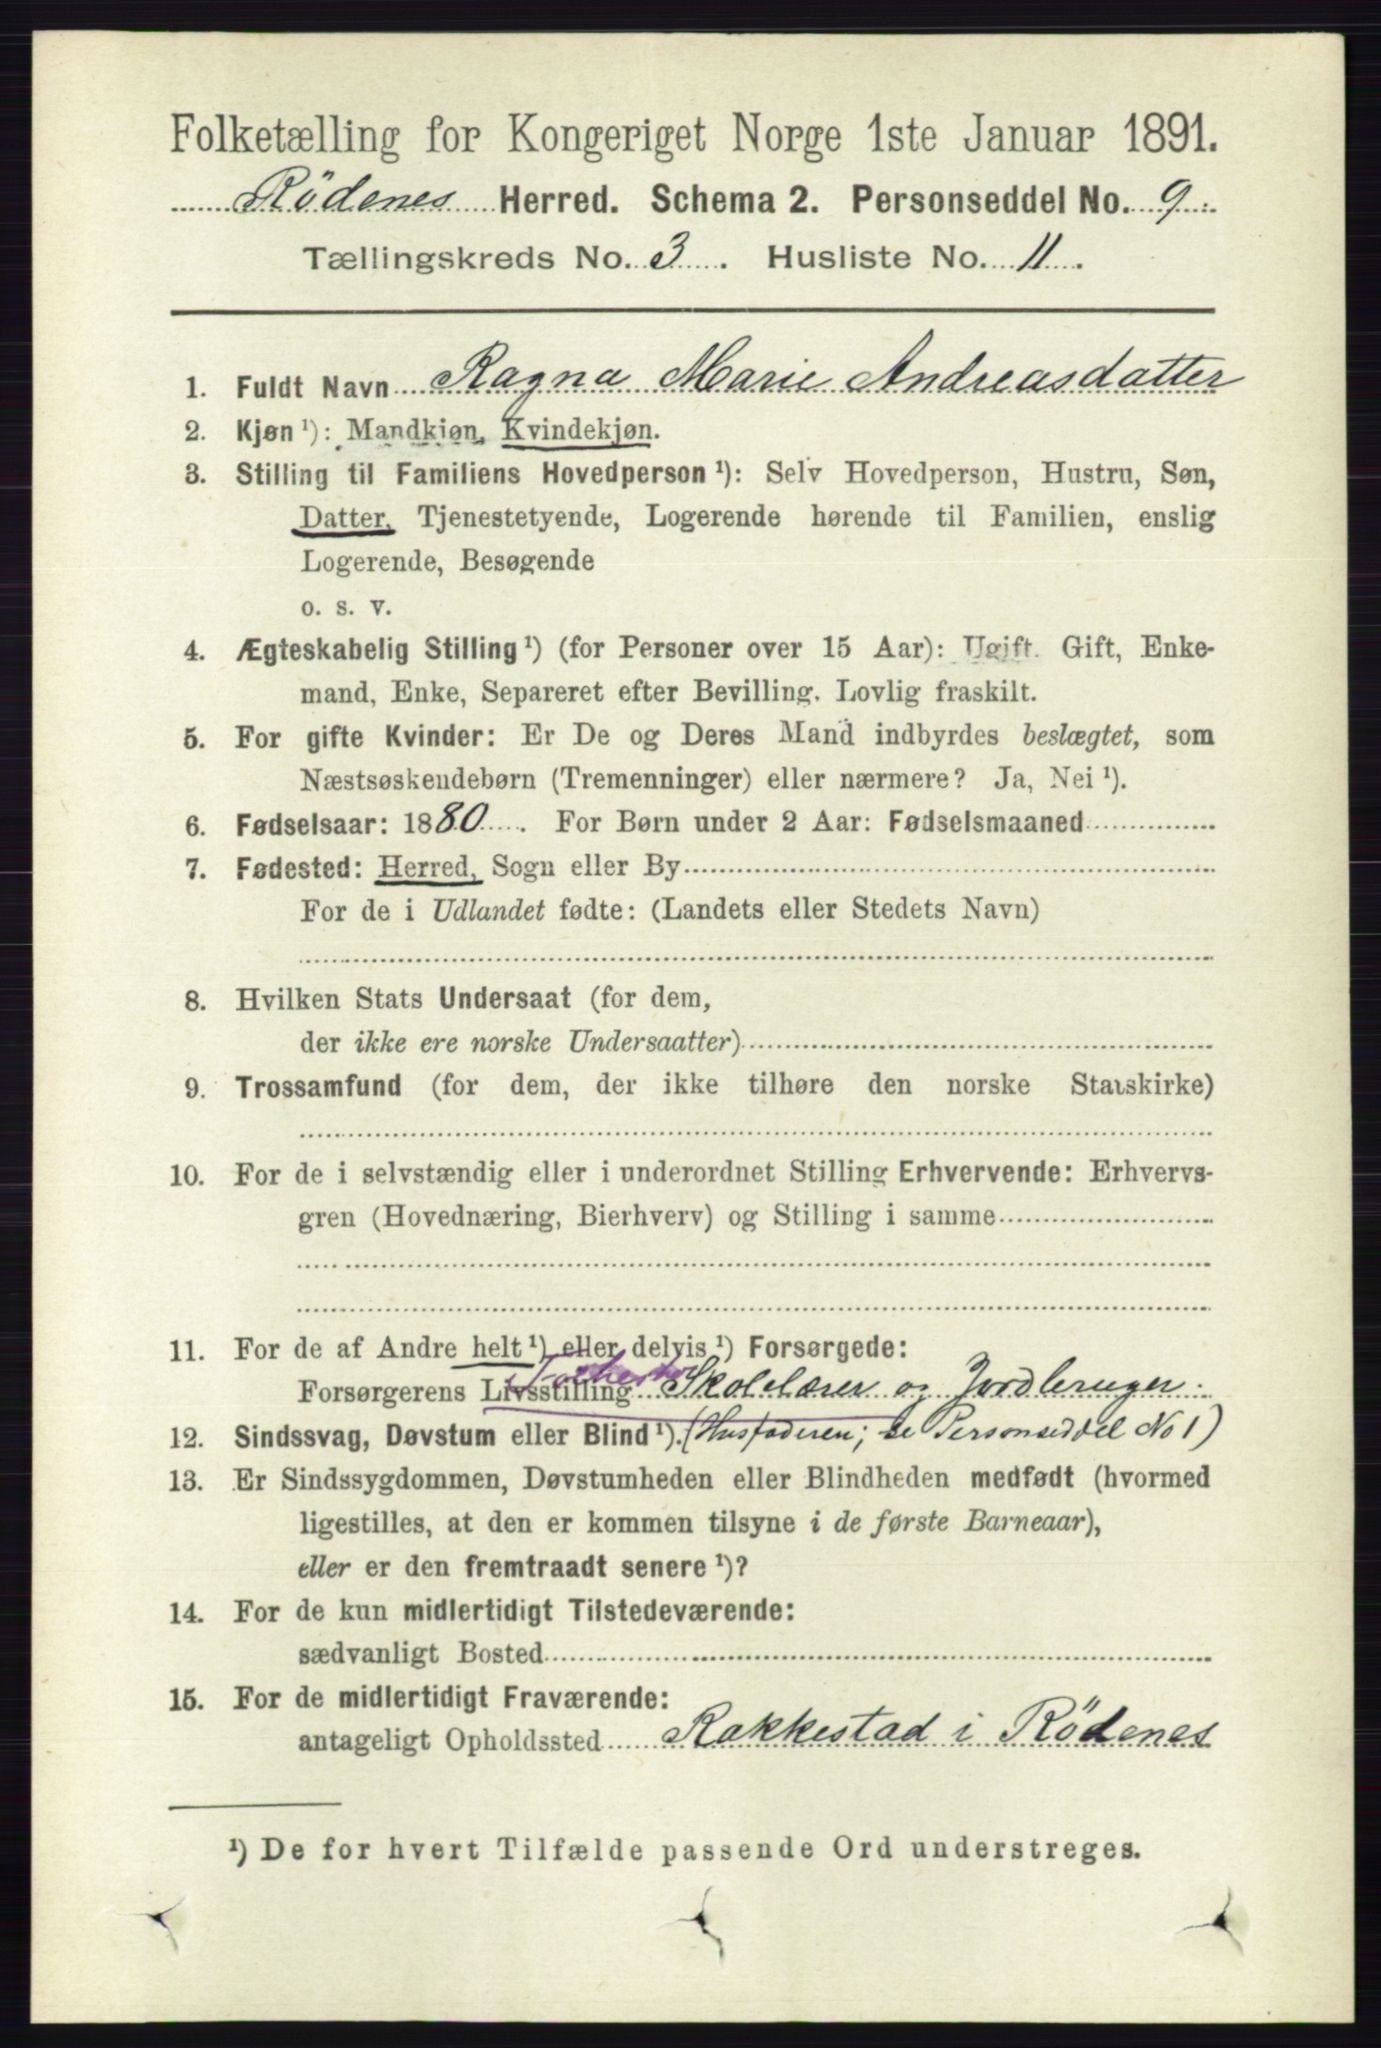 Folketælling for Kongeriget Norge 1ste Januar 1891.
Rödenes Herred. Schema 2. Personseddel No. 9.
Tællingskreds No. 3. Husliste No. 11.
1. Fuldt Navn Ragna Marie Andreasdatter
2. Kjøn ¹): Mandkjøn, Kvindekjøn.
3. Stilling til Familiens Hovedperson ¹): Selv Hovedperson, Hustru, Søn,
Datter, Tjenestetyende, Logerende hørende til Familien, enslig
Logerende, Besøgende
o. s. v.
4. Ægteskabelig Stilling ¹) (for Personer over 15 Aar): Ugift. Gift, Enke-
mand, Enke, Separeret efter Bevilling. Lovlig fraskilt.
5. For gifte Kvinder: Er De og Deres Mand indbyrdes beslægtet, som
Næstsøskendebørn (Tremenninger) eller nærmere? Ja, Nei ¹).
6. Fødselsaar: 1880. For Børn under 2 Aar: Fødselsmaaned
7. Fødested: Herred, Sogn eller By
For de i Udlandet fødte: (Landets eller Stedets Navn)
8. Hvilken Stats Undersaat (for dem,
der ikke ere norske Undersaatter)
9. Trossamfund (for dem, der ikke tilhøre den norske Statskirke)
10. For de i selvstændig eller i underordnet Stilling Erhvervende: Erhvervs-
gren (Hovednæring, Bierhverv) og Stilling i samme
11. For de af Andre helt ¹) eller delvis ¹) Forsørgede:
Forsørgerens Livsstilling Skolelærer og Jordbruger.
12. Sindssvag, Døvstum eller Blind ¹). (Husfaderen; se Personseddel No 1)
13. Er Sindssygdommen, Døvstumheden eller Blindheden medfødt (hvormed
ligestilles, at den er kommen tilsyne i de første Barneaar),
eller er den fremtraadt senere ¹)?
14. For de kun midlertidigt Tilstedeværende:
sædvanligt Bosted
15. For de midlertidigt Fraværende:
antageligt Opholdssted Rakkestad i Rödenes
¹) De for hvert Tilfælde passende Ord understreges.